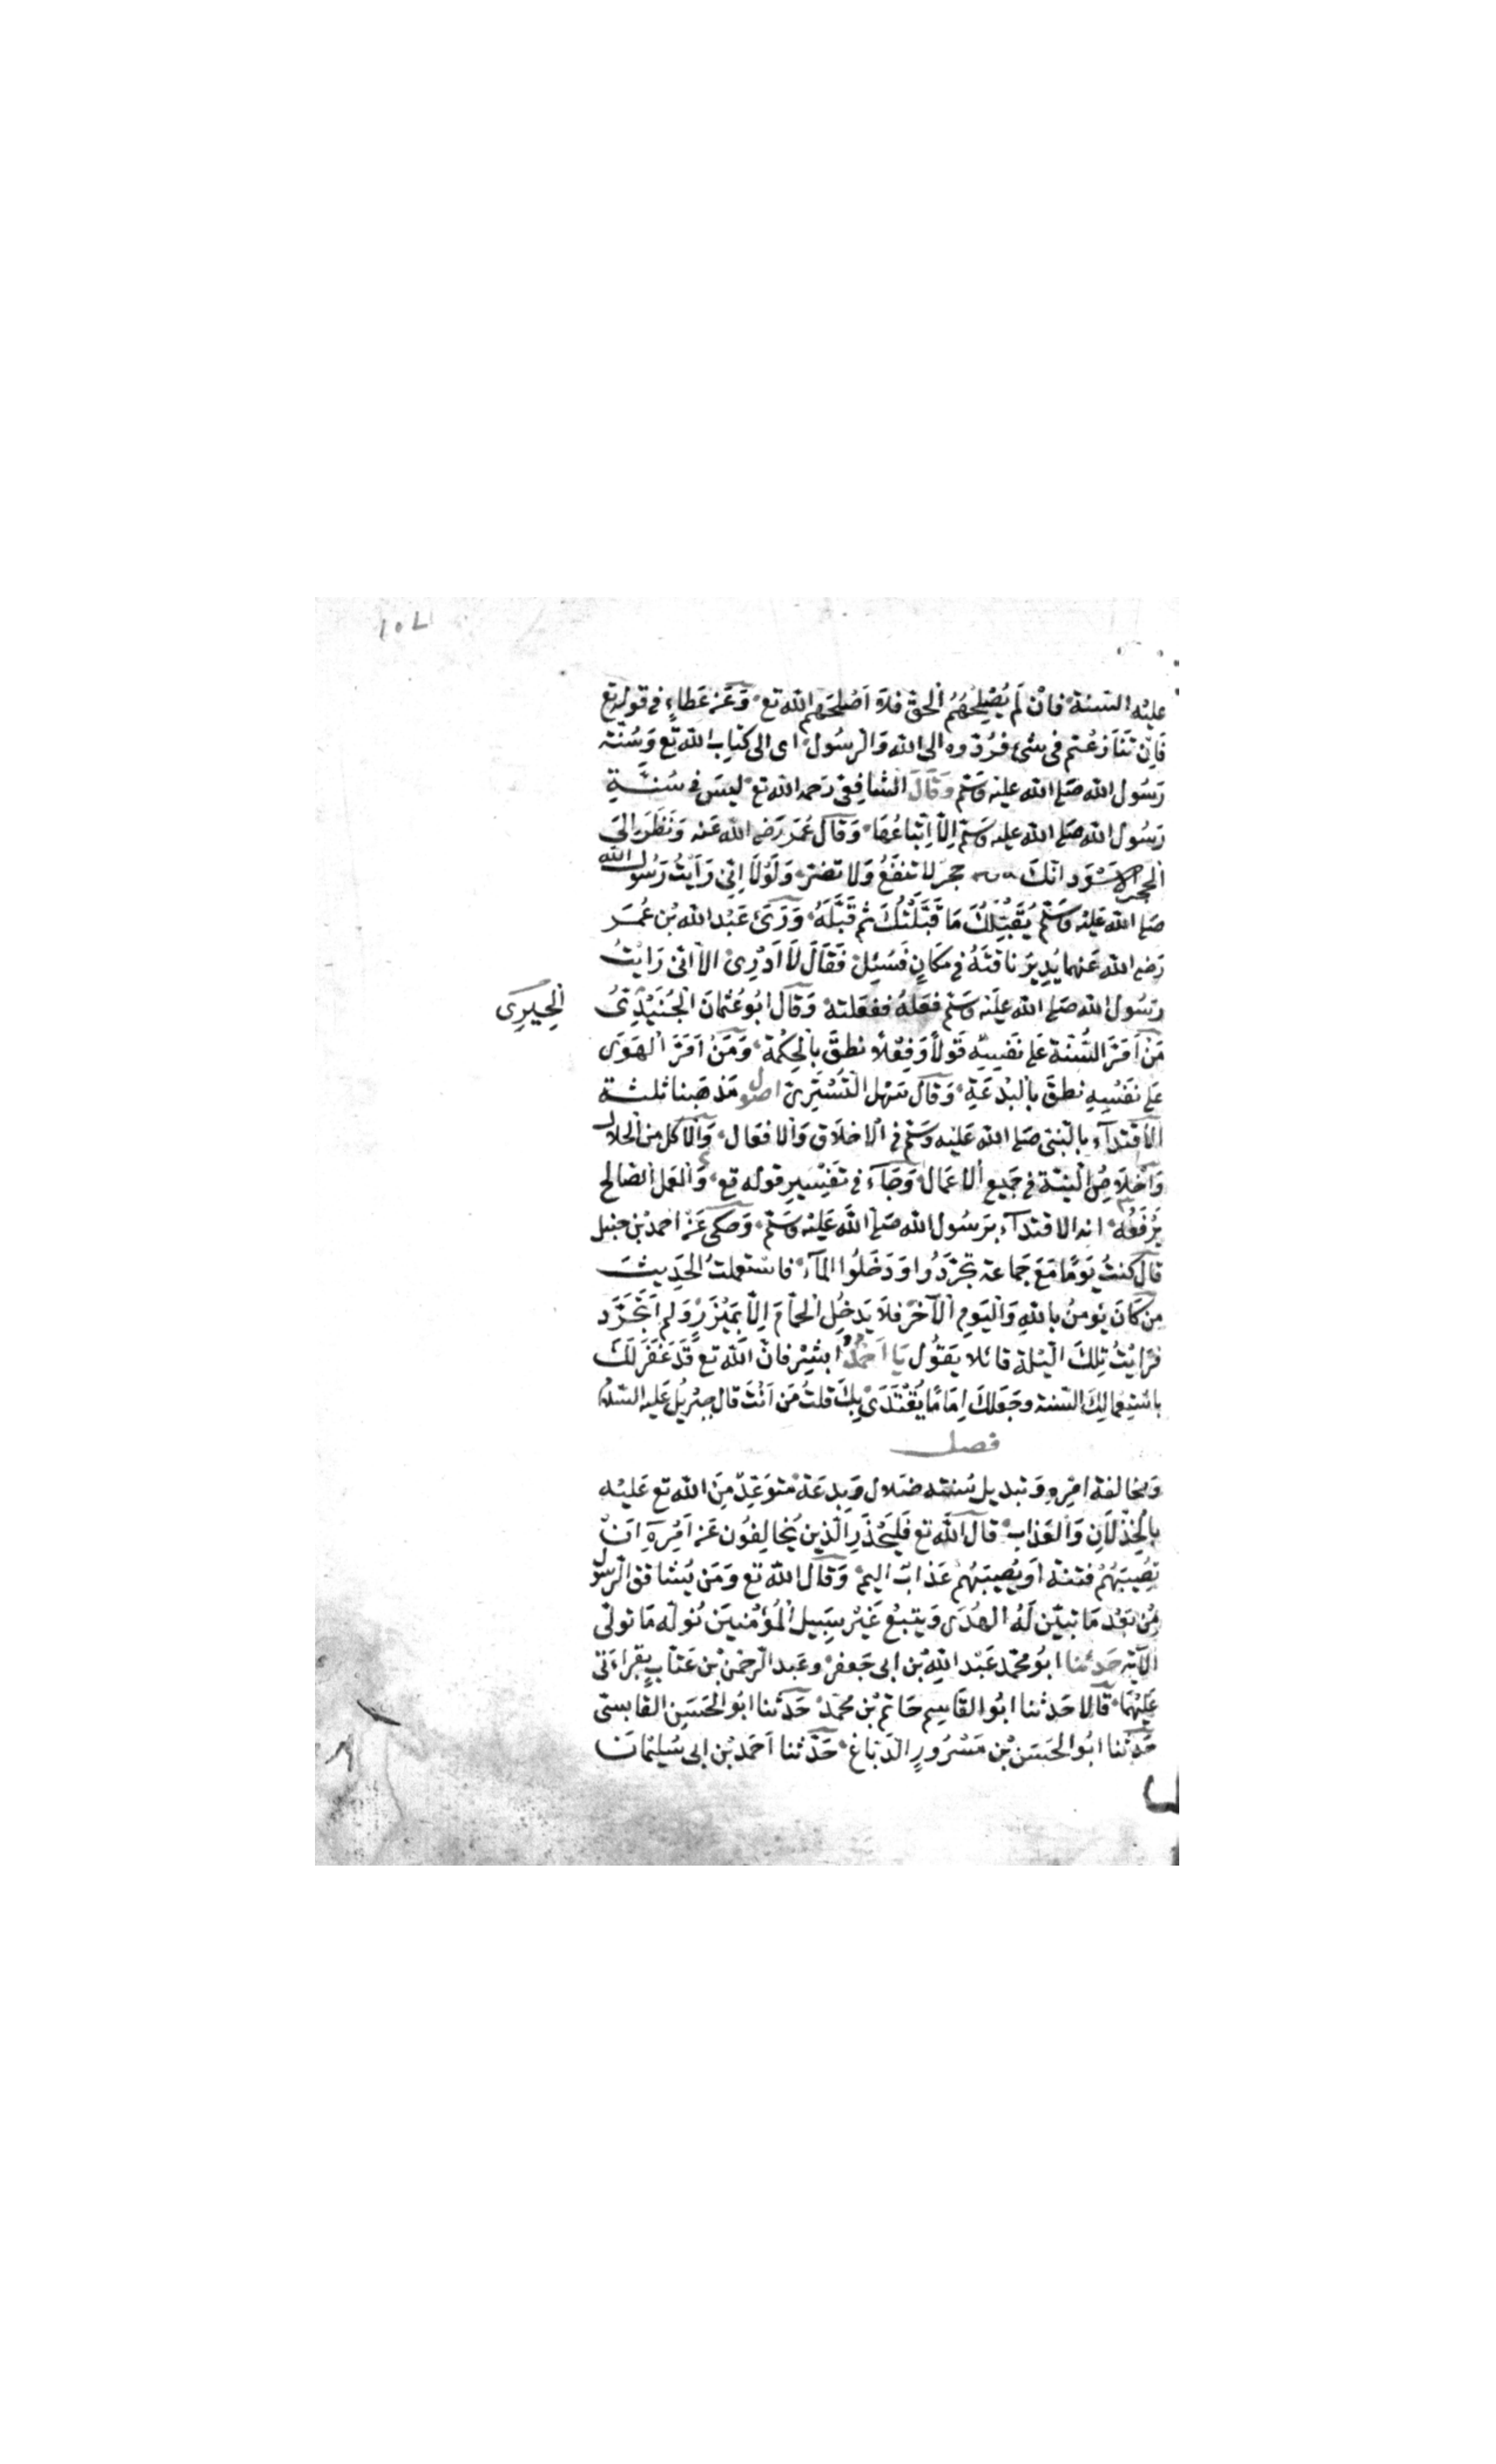 ١٥٦
عليْه السنة فان لم يُصْلِحْهُمُ الحق فلا اَصْلَحَهم الله تع وَعَن عَطاءٍ في قوله تع
فَاِن تَنَازعْتم في شئ فردّوه الى الله وَالرسُول اى الى كتاب الله تع وَسُنّة
رَسُول الله صَلى الله عليْه وَسَلم وَقَالَ الشافِعى رَحمه الله تع ليسَ في سُنّــةِ
رَسُول الله صَلى الله عليه وَسَلم اِلاّ اِتّباعُهَا وَقَالَ عُمَرُ رَضى الله عَنه وَنَظَرَ الىَ
الحجر الاسْوَد انكَ حجرٌ لا تنفَعُ وَلا تضرّ وَلَوْلاَ اِنّى رَاَيْتُ رَسُول الله
صَلى الله عَليْه وَسَلّم يُقَبِّلُكَ مَا قَبَّلْتُكَ ثُم قَبَّلَهُ وَرَئ عَبْد الله بْن عُمَــر
رَضى الله عَنهما يُدِيرُ ناقتَهُ في مَكَانٍ فَسُئِلَ فَقَالَ لاَ اَدْرِىْ الاّ انى رَاَيْتُ
رسُول الله صَلى الله عليْه وَسَلم فعَلهُ ففعَلته وَقَالَ ابُو عُثْمانَ الجُنَيْدِىُّ
الحِيرِى
مَنْ اَمَّرَ السُّنة عَلى نَفْسِه قَولاً وَفِعْلاً نطقَ بالحِكمة وَمَنْ اَمَّرَ الهَوَى
عَلى نَفْسِهِ نطقَ بالبدعَةِ وَقالَ سَهْل التسْتَرِىّ اصُول مَذهَبنا ثلثــة
الاقتدَآء بالنّبىّ صَلى الله عَليْه وَسَلّم في الاخلاَق وَالافعَال وَالاكل من الحَلال
وَاخْلاَصُ النيّة في جَميع الاعمَال وَجَآءَ في تفْسِيرِ قوله تع وَالعَمل الصَالح
يَرْفَعُه انه الاقتدآء برَسُول الله صَلى الله عَليْه وَسَلم وَحكى عَن احمد بْن حنبل
قالَ كنتُ يَوْمًا مَعَ جَماعة تجرّدُوا وَدَخَلُوا المآء فاستعملتُ الحَديث
مَن كَانَ يُؤمنُ باللهِ وَاليَومِ الآخر فلاَ يَدخُل الحمّامَ اِلاّ بمِيْزَرٍ وَلم اَتجَرَّد
فرَاَيْتُ تِلكَ الليْلة قائلاً يَقُول يَا اَحمَدُ ابشِر فانّ الله تع قَد غَفَرَ لَكَ
باسْتِعْمالِكَ السّنة وجَعَلكَ اِمَامًا يُقْتَدَىْ بِكَ قلتُ مَن اَنْتَ قال جبْريلُ عَليه السّلام
فصــل
وَمخالفة امْرِهِ وَتبديل سُنته ضَلال وَبدعَة متوَعّد مِنَ الله تع عَليْه
بالخِذلاَنِ وَالعَذاب قَالَ الله تع فَليَحْذَرِ الّذين يُخالِفُون عَن اَمْرِه اَنْ
تصِيبَهُمْ فتنة اَو يُصِيبَهُمْ عَذابٌ اليم وَقَالَ الله تع وَمَن يُشاقق الرسُول
مِنْ بَعْد مَا تبيّن لَهُ الهُدَى وَيتبعْ غَيْرَ سَبِيل المُؤمنينَ نُولّه مَا تولّى
الآية حَدثنا ابُو محمّد عَبْد الله بْن ابى جَعفر وعَبد الرحمٰن بْن عَتاب بقراءَتى
عَليْهمَا قَالا حَدثنا ابُو القَاسِم حَاتم بْن محُمّد حَدّثنا ابُو الحَسَن القابسىّ
حَدّثنا ابُو الحَسَن بْن مَسْرُورٍ الدّباغ حَدّثنا اَحمَد بْن ابى سُليْمَان